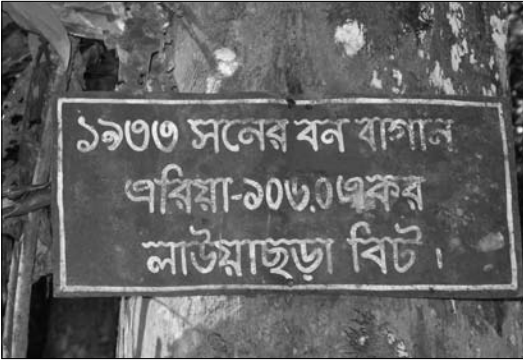 ১৯৩৩ সনের বন বাগান
এরিয়া-১০৬.০একর
লাউয়াছড়া বিট।